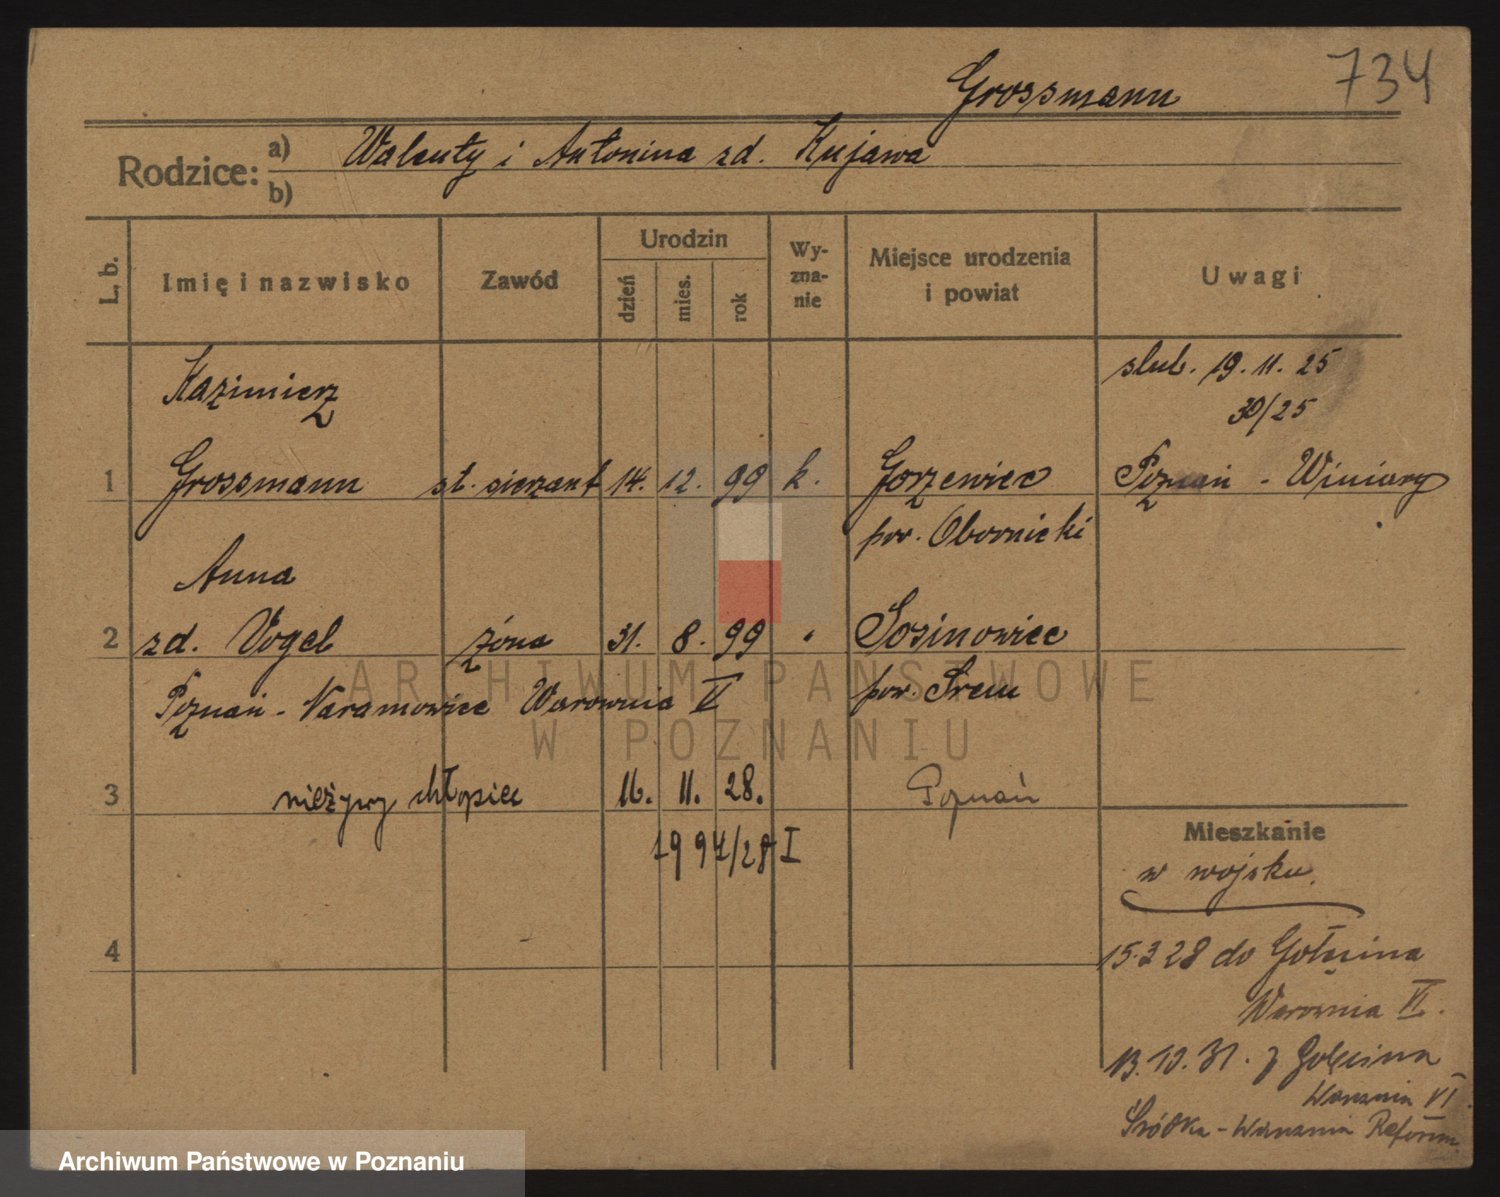 Grossmann 734
Rodzice: a) Walenty i Antonina zd. Kujawa
b)
L. b. Imię i nazwisko Zawód Urodzin dzień mies. rok Wy-zna-nie Miejsce urodzenia i powiat Uwagi
Kazimierz ślub. 19. 11. 25
30/25
1 Grossmann st. sierżant 14. 12. 99 k. Gorzewice Poznań - Winiary
pow. Obornicki
Anna
2 zd. Vogel żona 31. 8. 99 " Sosinowiec
Poznań - Naramowice Warownia V pow. Śrem
3 nieżywy chłopiec 16. 11. 28. Poznań
1994/28 I
Mieszkanie
w wojsku.
4
15.3 28 do Gołęcina
Warownia VI.
13. 10. 31. z Golęcina
Warownia VI
Śródka - Warownia Reform
ARCHIWUM PAŃSTWOWE
W POZNANIU
Archiwum Państwowe w Poznaniu